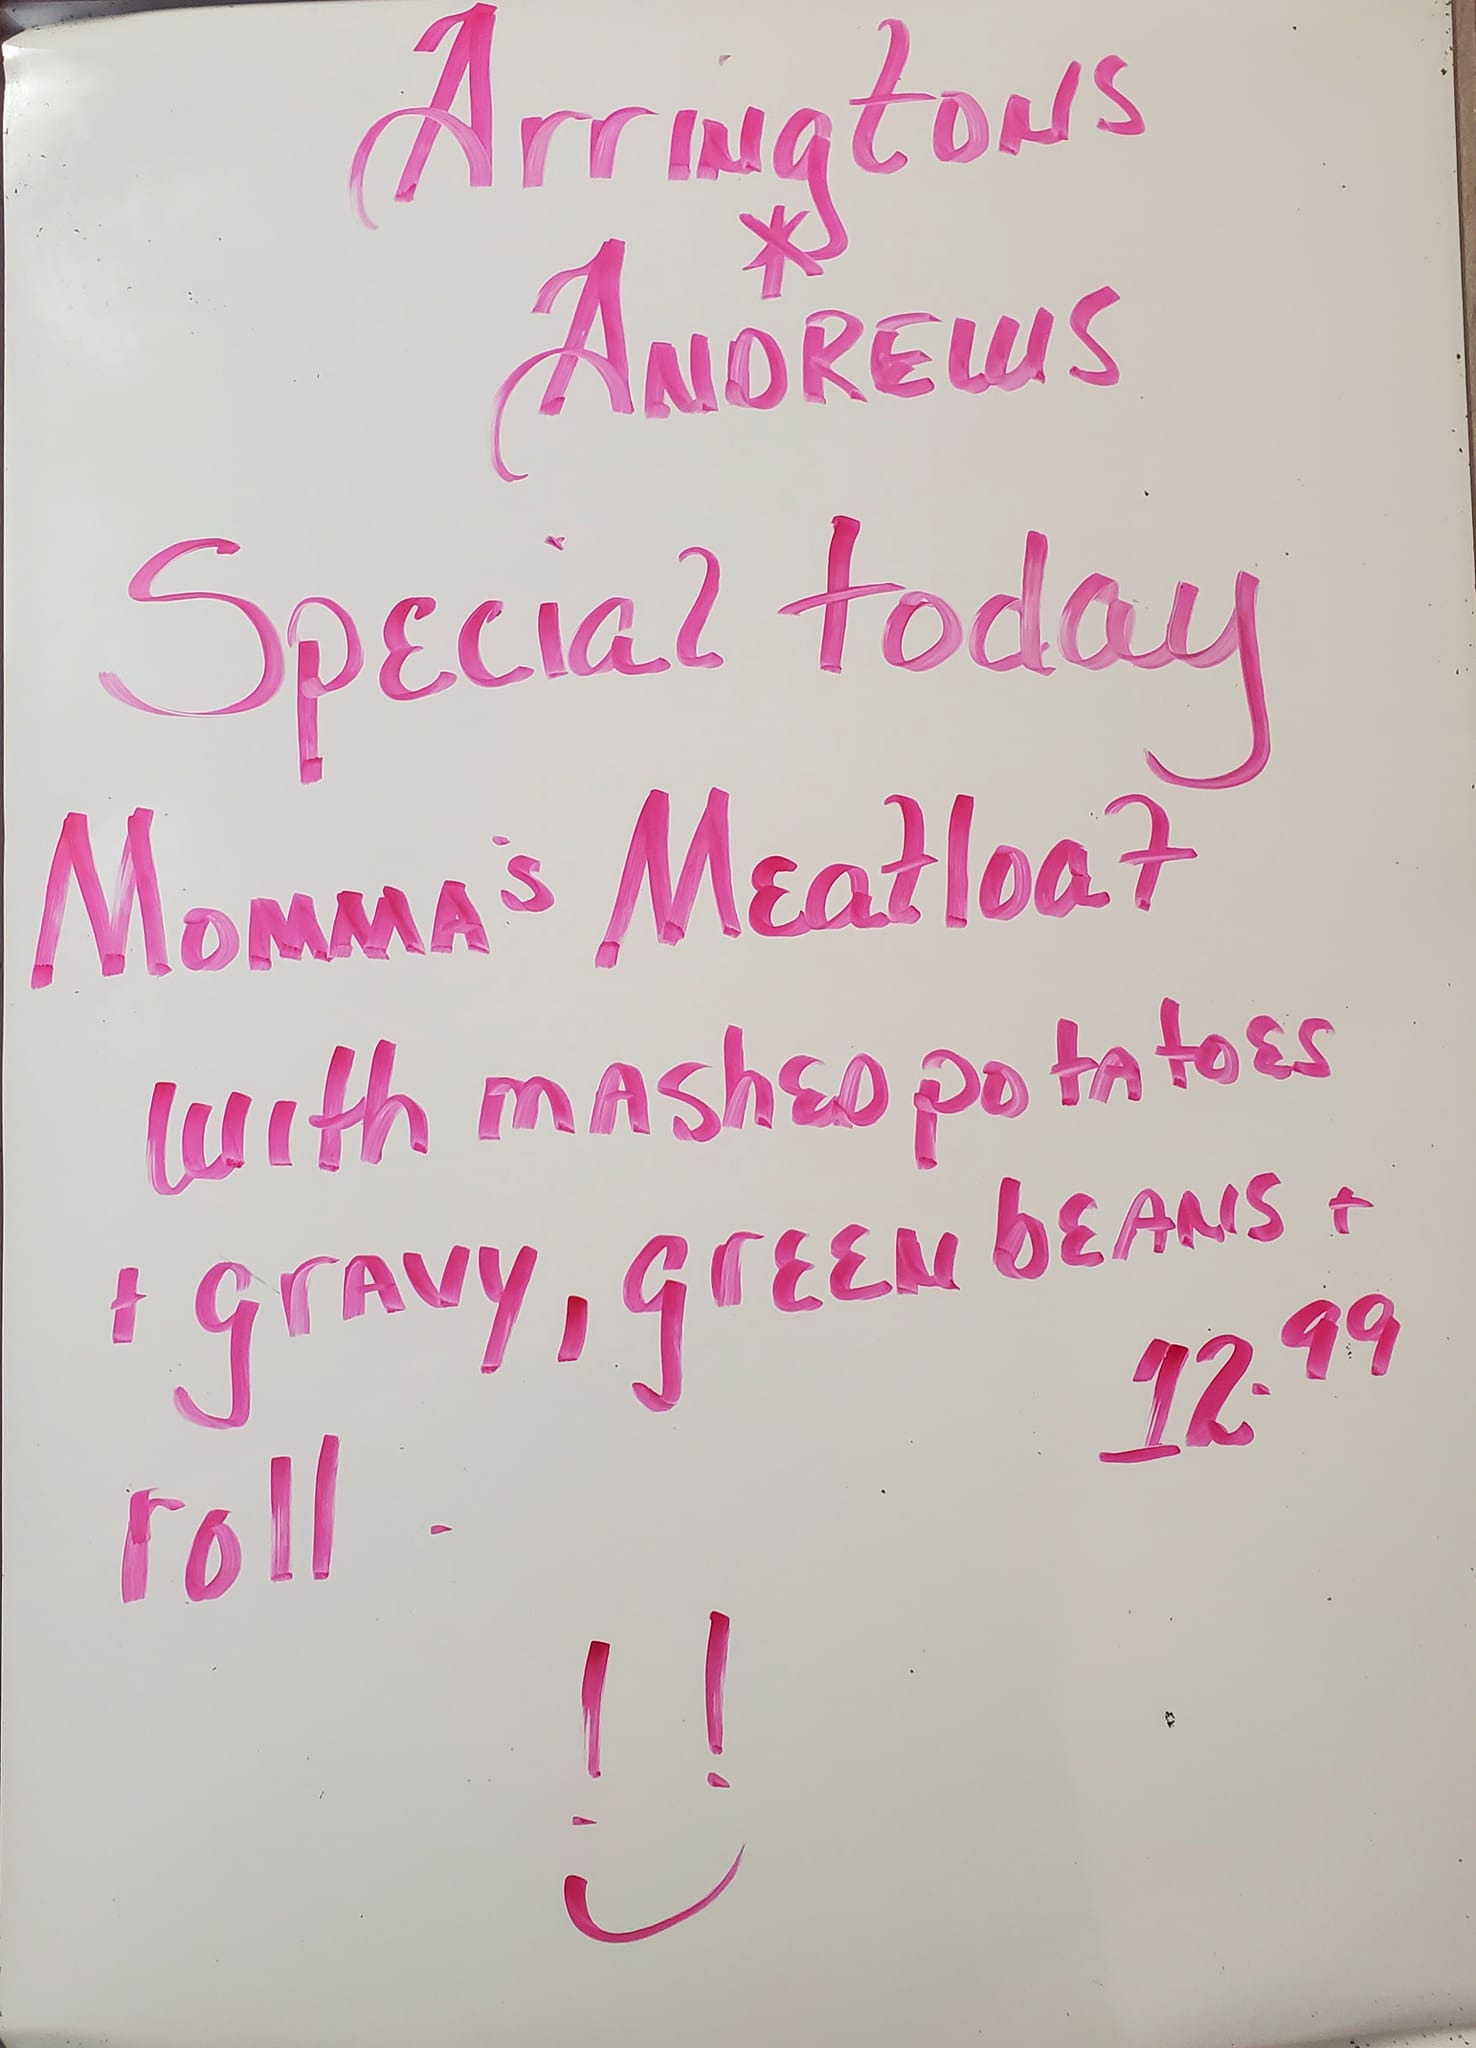 Arringtons
*
ANDREWS
Special today
MOMMA's Meatloaf
with mASHED potAtoES
+ grAVY, grEEN bEANS +
12.99
roll -
! !